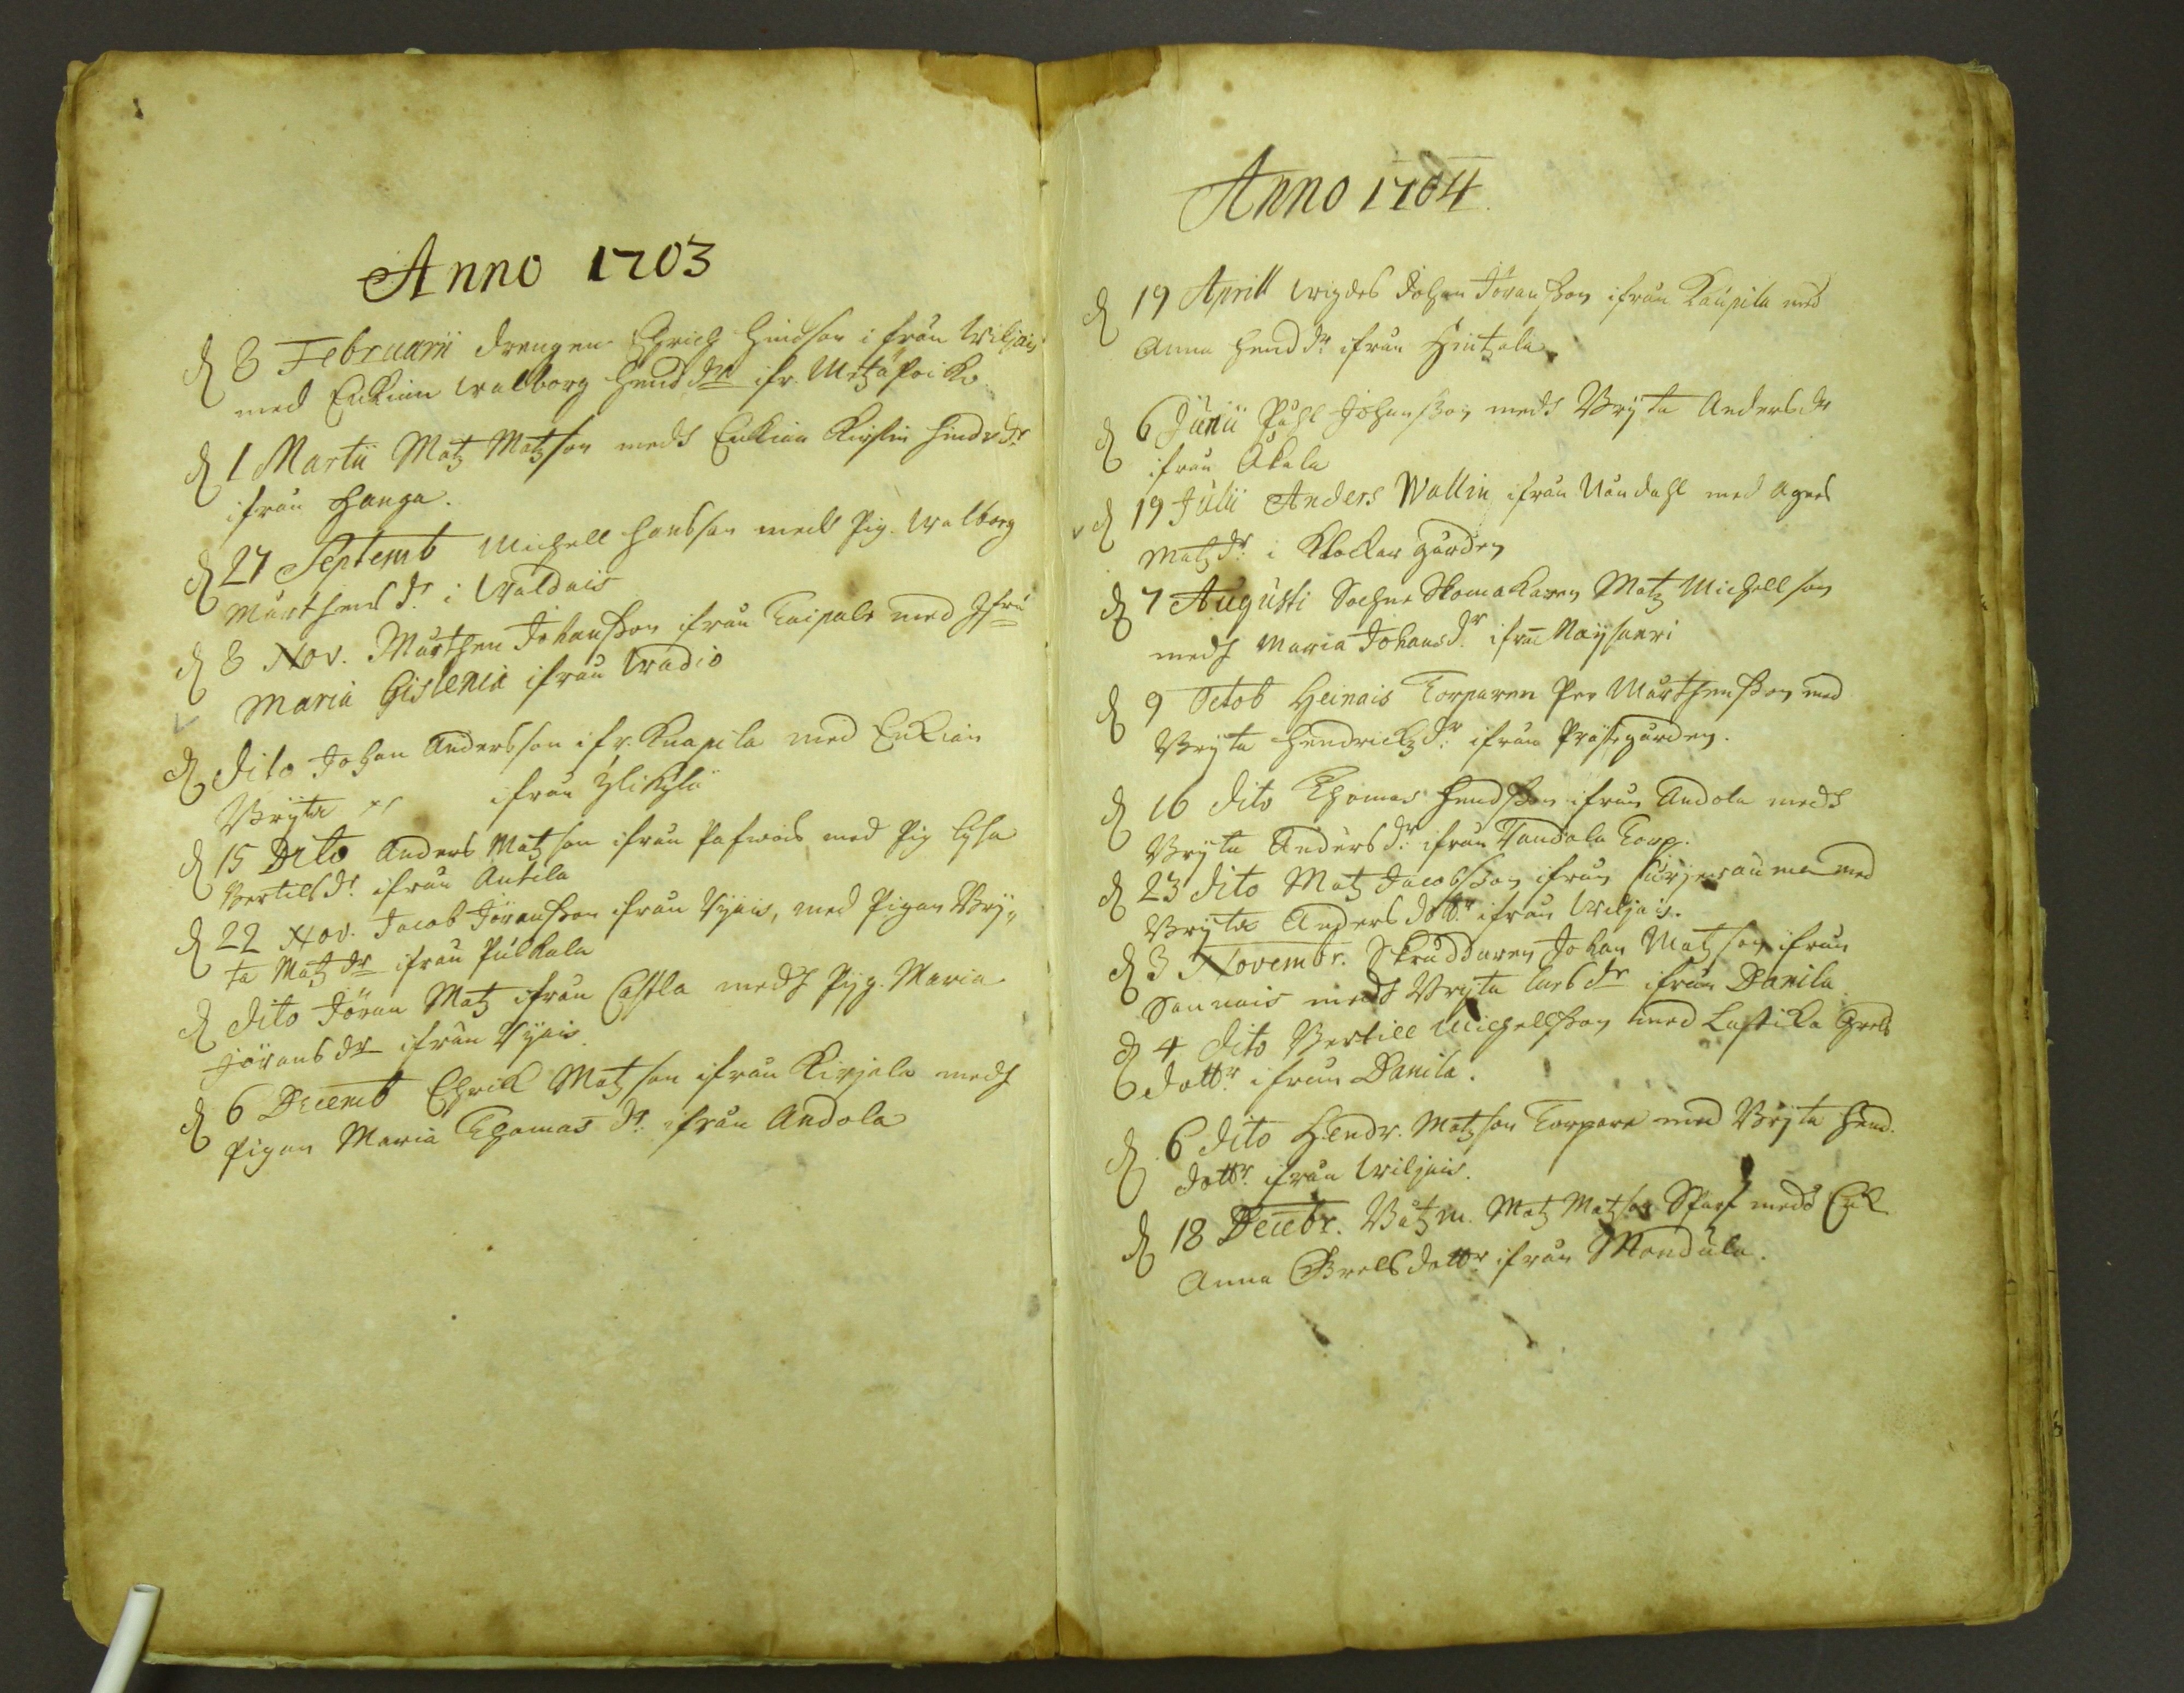 Anno 1703
d 8 Februarii drengen Chrich Hindson i från Wiljais
med Enkian Walborg Hendr dr ifr. Metzäpoiko
d 1 Martii Matz Matzson medh Enkian Kirstin Hindr dr
ifrån Hanga.
d 27 Septemb Michell Hansson medh Pig. Walborg
Mårthens dr. i Waldais
d 8 Nov. Mårthen Johansson ifrån Taipale med Jfru
Maria Gislenia ifrån Wradio
d dito Johan Andersson ifr. Knapila med Enkian
Bryta ifrån Ylikylä
d 15 Dito Anders Matzson ifrån Pafwais med Pig Lisa
Bertils dr. ifrån Antila
d 22 Nov. Jacob Jöransson ifrån Vyais, med Pigan Bry-
ta Matz dr ifrån Pulkala
d dito Jöran Matz ifrån Castla medh Pyg. Maria
Jörans dr ifrån Vyais.
d 6 Decemb Chrill Matzson ifrån Kirjala medh
Pigan Maria Thomas dr. ifrån Andola
Anno 1704.
d 19 Aprill wigdes Johan Jöransson ifrån Kaupila med
Anna Hend dr ifrån Hintzala
d 6 Junii Påhl Johansson medh Bryta Anders dr
ifrån Åkala
d 19 Julii Anders Wallin ifrån Nåndahl med Agnes
Matz dr. i Klockar gården
d 7 Augusti Sochne Skomakaren Matz Michellson
medh Maria Johans dr. ifrån Naysaari
d 9 Octob Heinais Torparen Per Mårthensson med
Bryta Hendrickz dr. ifrån Prästgården.
d 16 dito Thomas Hendsson ifrån Andola medh
Bryta Anders dr. ifrån Tandala Torp.
d 23 dito Matz Jacobsson ifrån Curjenraumen med
Bryta Anders dottr ifrån Wiljais.
d 3 Novembr. Skräddaren Johan Matzson ifrån
Sannais medh Bryta Lars dr ifrån Danila
d 4 dito Bertill Michellsson med Lastika Grels
dottr ifrån Danila.
d 6 dito Hendr. Matzson Torpare med Bryta Hend.
dottr. ifrån Wiljais.
d 18 Decebr. Båtzm. Matz Matzson Skarf medh Enk
Anna Grelsdottr ifrån Mandula.